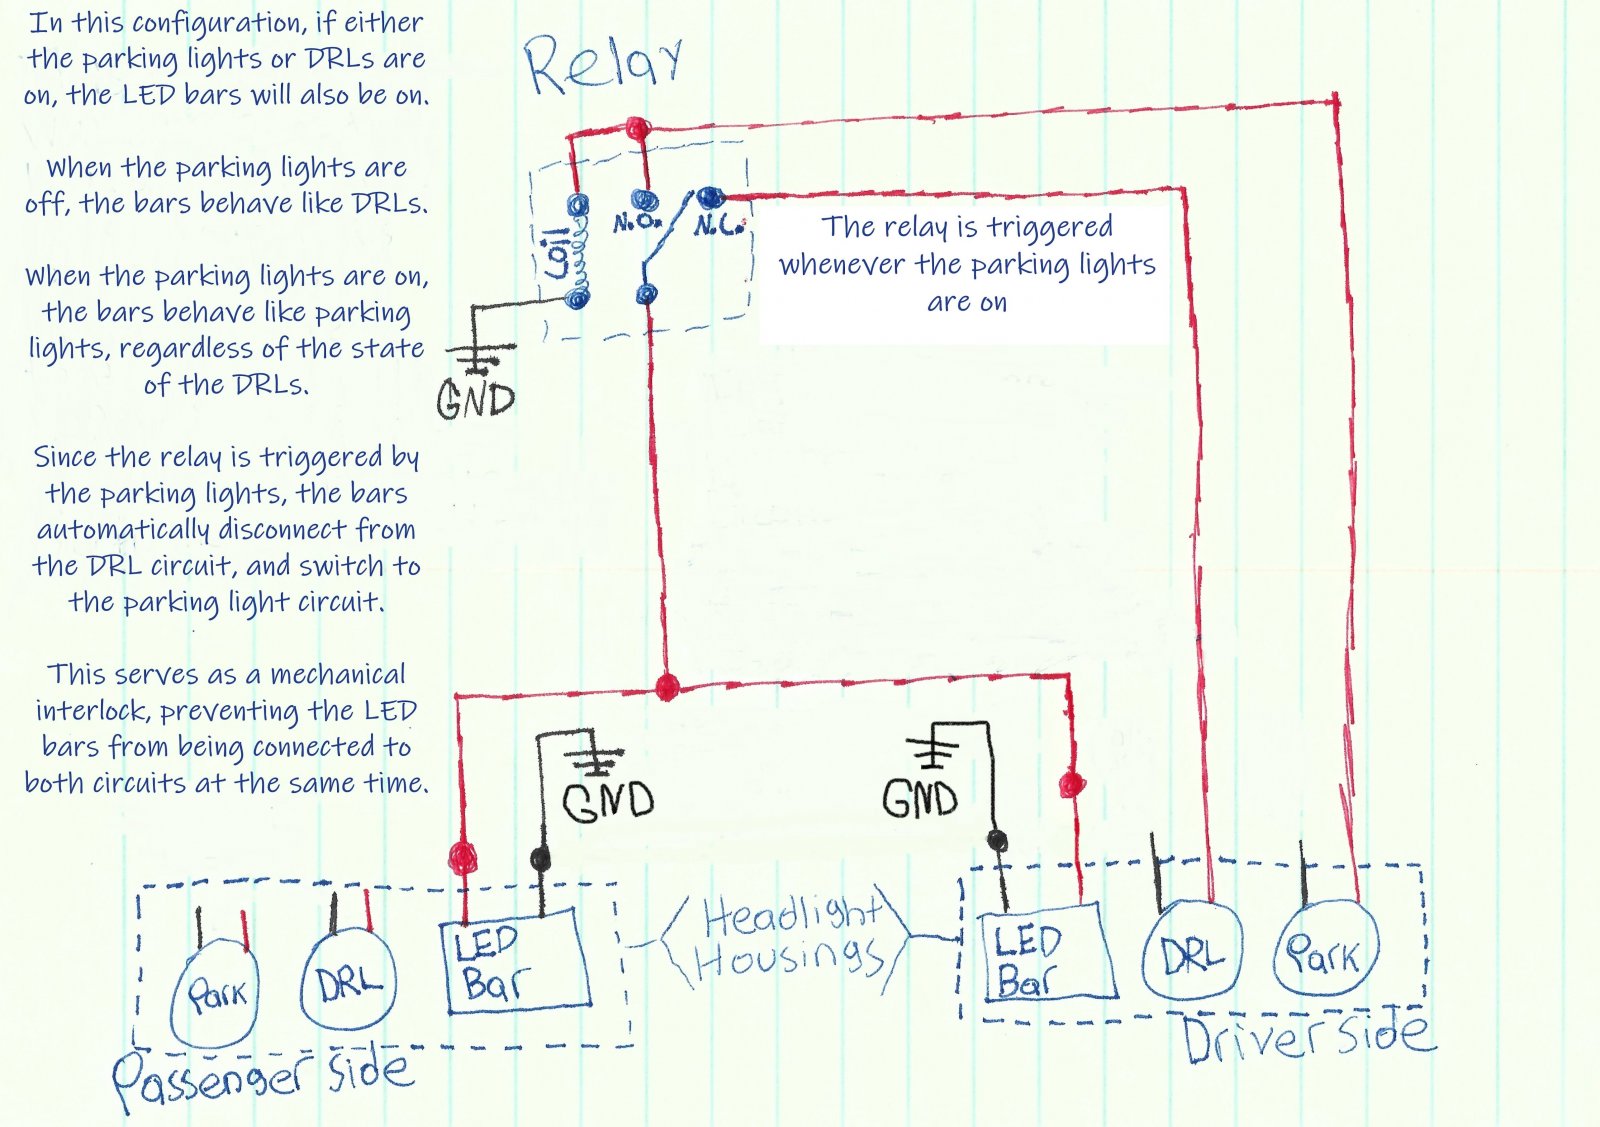 In this configuration, if either
the parking lights or DRLs are
on, the LED bars will also be on.
When the parking lights are
off, the bars behave like DRLs.
When the parking lights are on,
the bars behave like parking
lights, regardless of the state
of the DRLs.
Since the relay is triggered by
the parking lights, the bars
automatically disconnect from
the DRL circuit, and switch to
the parking light circuit.
This serves as a mechanical
interlock, preventing the LED
bars from being connected to
both circuits at the same time.
Relay
Coil
N.O.
N.C.
The relay is triggered
whenever the parking lights
are on
GND
GND
GND
Park
DRL
LED
Bar
Headlight
Housings
LED
Bar
DRL
Park
Passenger side
Driver side